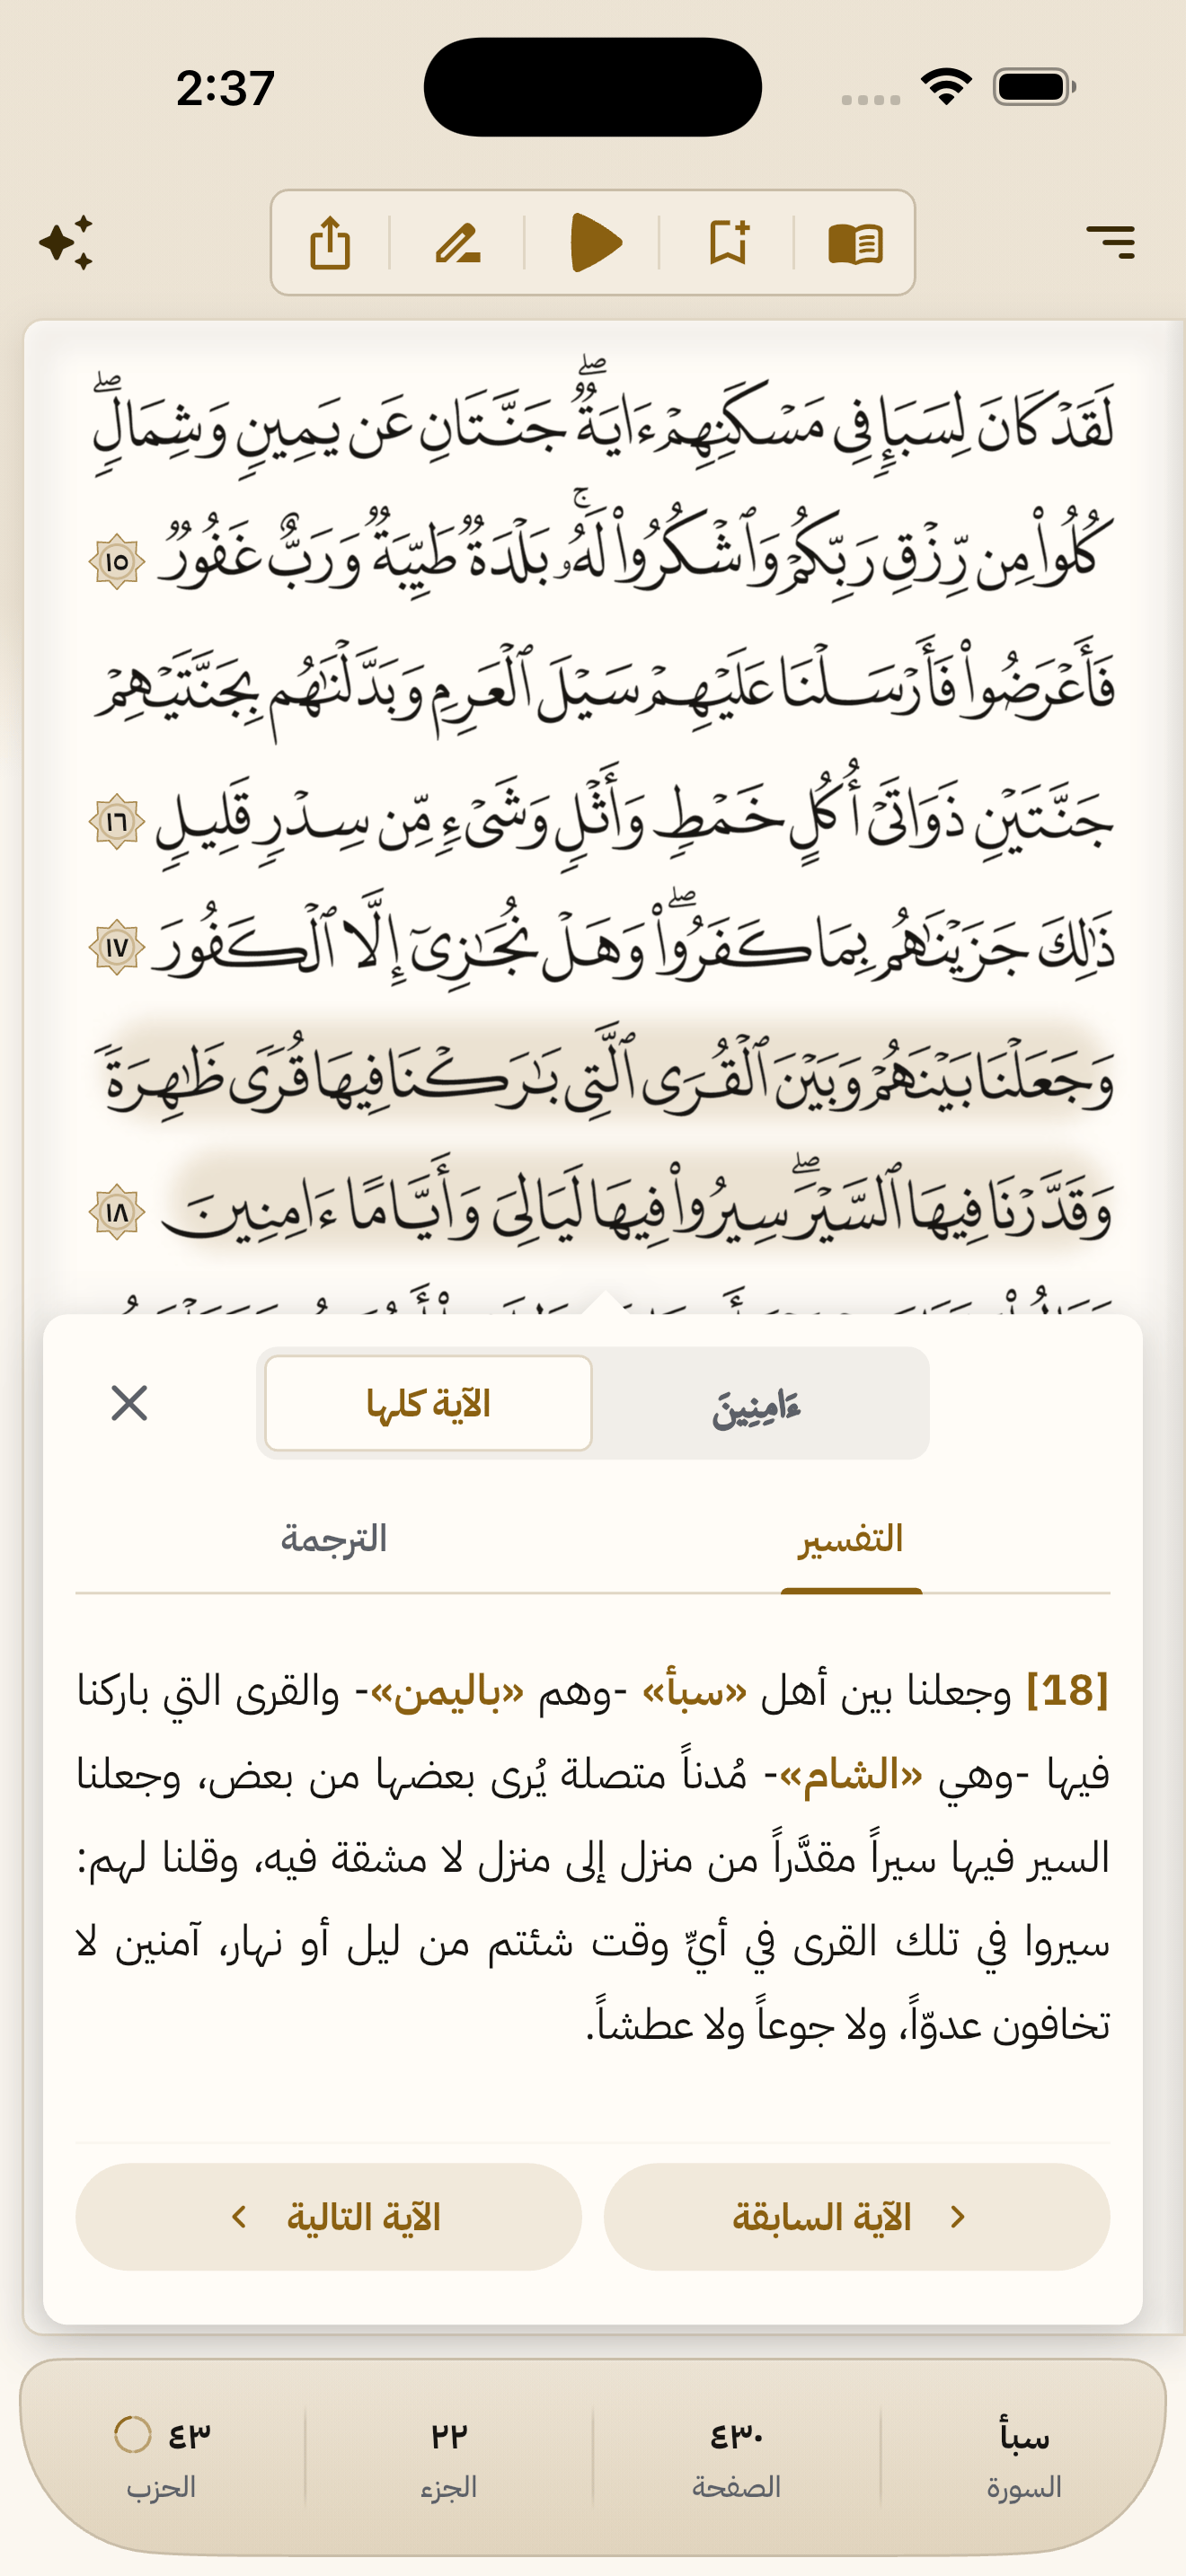 2:37
لَقَدْ كَانَ لِسَبَإٍ فِى مَسْكَنِهِمْ ءَايَةٌ ۖ جَنَّتَانِ عَن يَمِينٍ وَشِمَالٍ ۖ
كُلُوا۟ مِن رِّزْقِ رَبِّكُمْ وَٱشْكُرُوا۟ لَهُۥ ۚ بَلْدَةٌ طَيِّبَةٌ وَرَبٌّ غَفُورٌ ١٥
فَأَعْرَضُوا۟ فَأَرْسَلْنَا عَلَيْهِمْ سَيْلَ ٱلْعَرِمِ وَبَدَّلْنَٰهُم بِجَنَّتَيْهِمْ
جَنَّتَيْنِ ذَوَاتَىْ أُكُلٍ خَمْطٍ وَأَثْلٍ وَشَىْءٍ مِّن سِدْرٍ قَلِيلٍ ١٦
ذَٰلِكَ جَزَيْنَٰهُم بِمَا كَفَرُوا۟ ۖ وَهَلْ نُجَٰزِىٓ إِلَّا ٱلْكَفُورَ ١٧
وَجَعَلْنَا بَيْنَهُمْ وَبَيْنَ ٱلْقُرَى ٱلَّتِى بَٰرَكْنَا فِيهَا قُرًى ظَٰهِرَةً
وَقَدَّرْنَا فِيهَا ٱلسَّيْرَ ۖ سِيرُوا۟ فِيهَا لَيَالِىَ وَأَيَّامًا ءَامِنِينَ ١٨
ءَامِنِينَ
الآية كلها
التفسير
الترجمة
[18] وجعلنا بين أهل «سبأ» -وهم «باليمن»- والقرى التي باركنا
فيها -وهي «الشام»- مُدناً متصلة يُرى بعضها من بعض، وجعلنا
السير فيها سيراً مقدَّراً من منزل إلى منزل لا مشقة فيه، وقلنا لهم:
سيروا في تلك القرى في أيِّ وقت شئتم من ليل أو نهار، آمنين لا
تخافون عدوّاً، ولا جوعاً ولا عطشاً.
الآية السابقة
الآية التالية
سبأ
السورة
٤٣٠
الصفحة
٢٢
الجزء
٤٣
الحزب